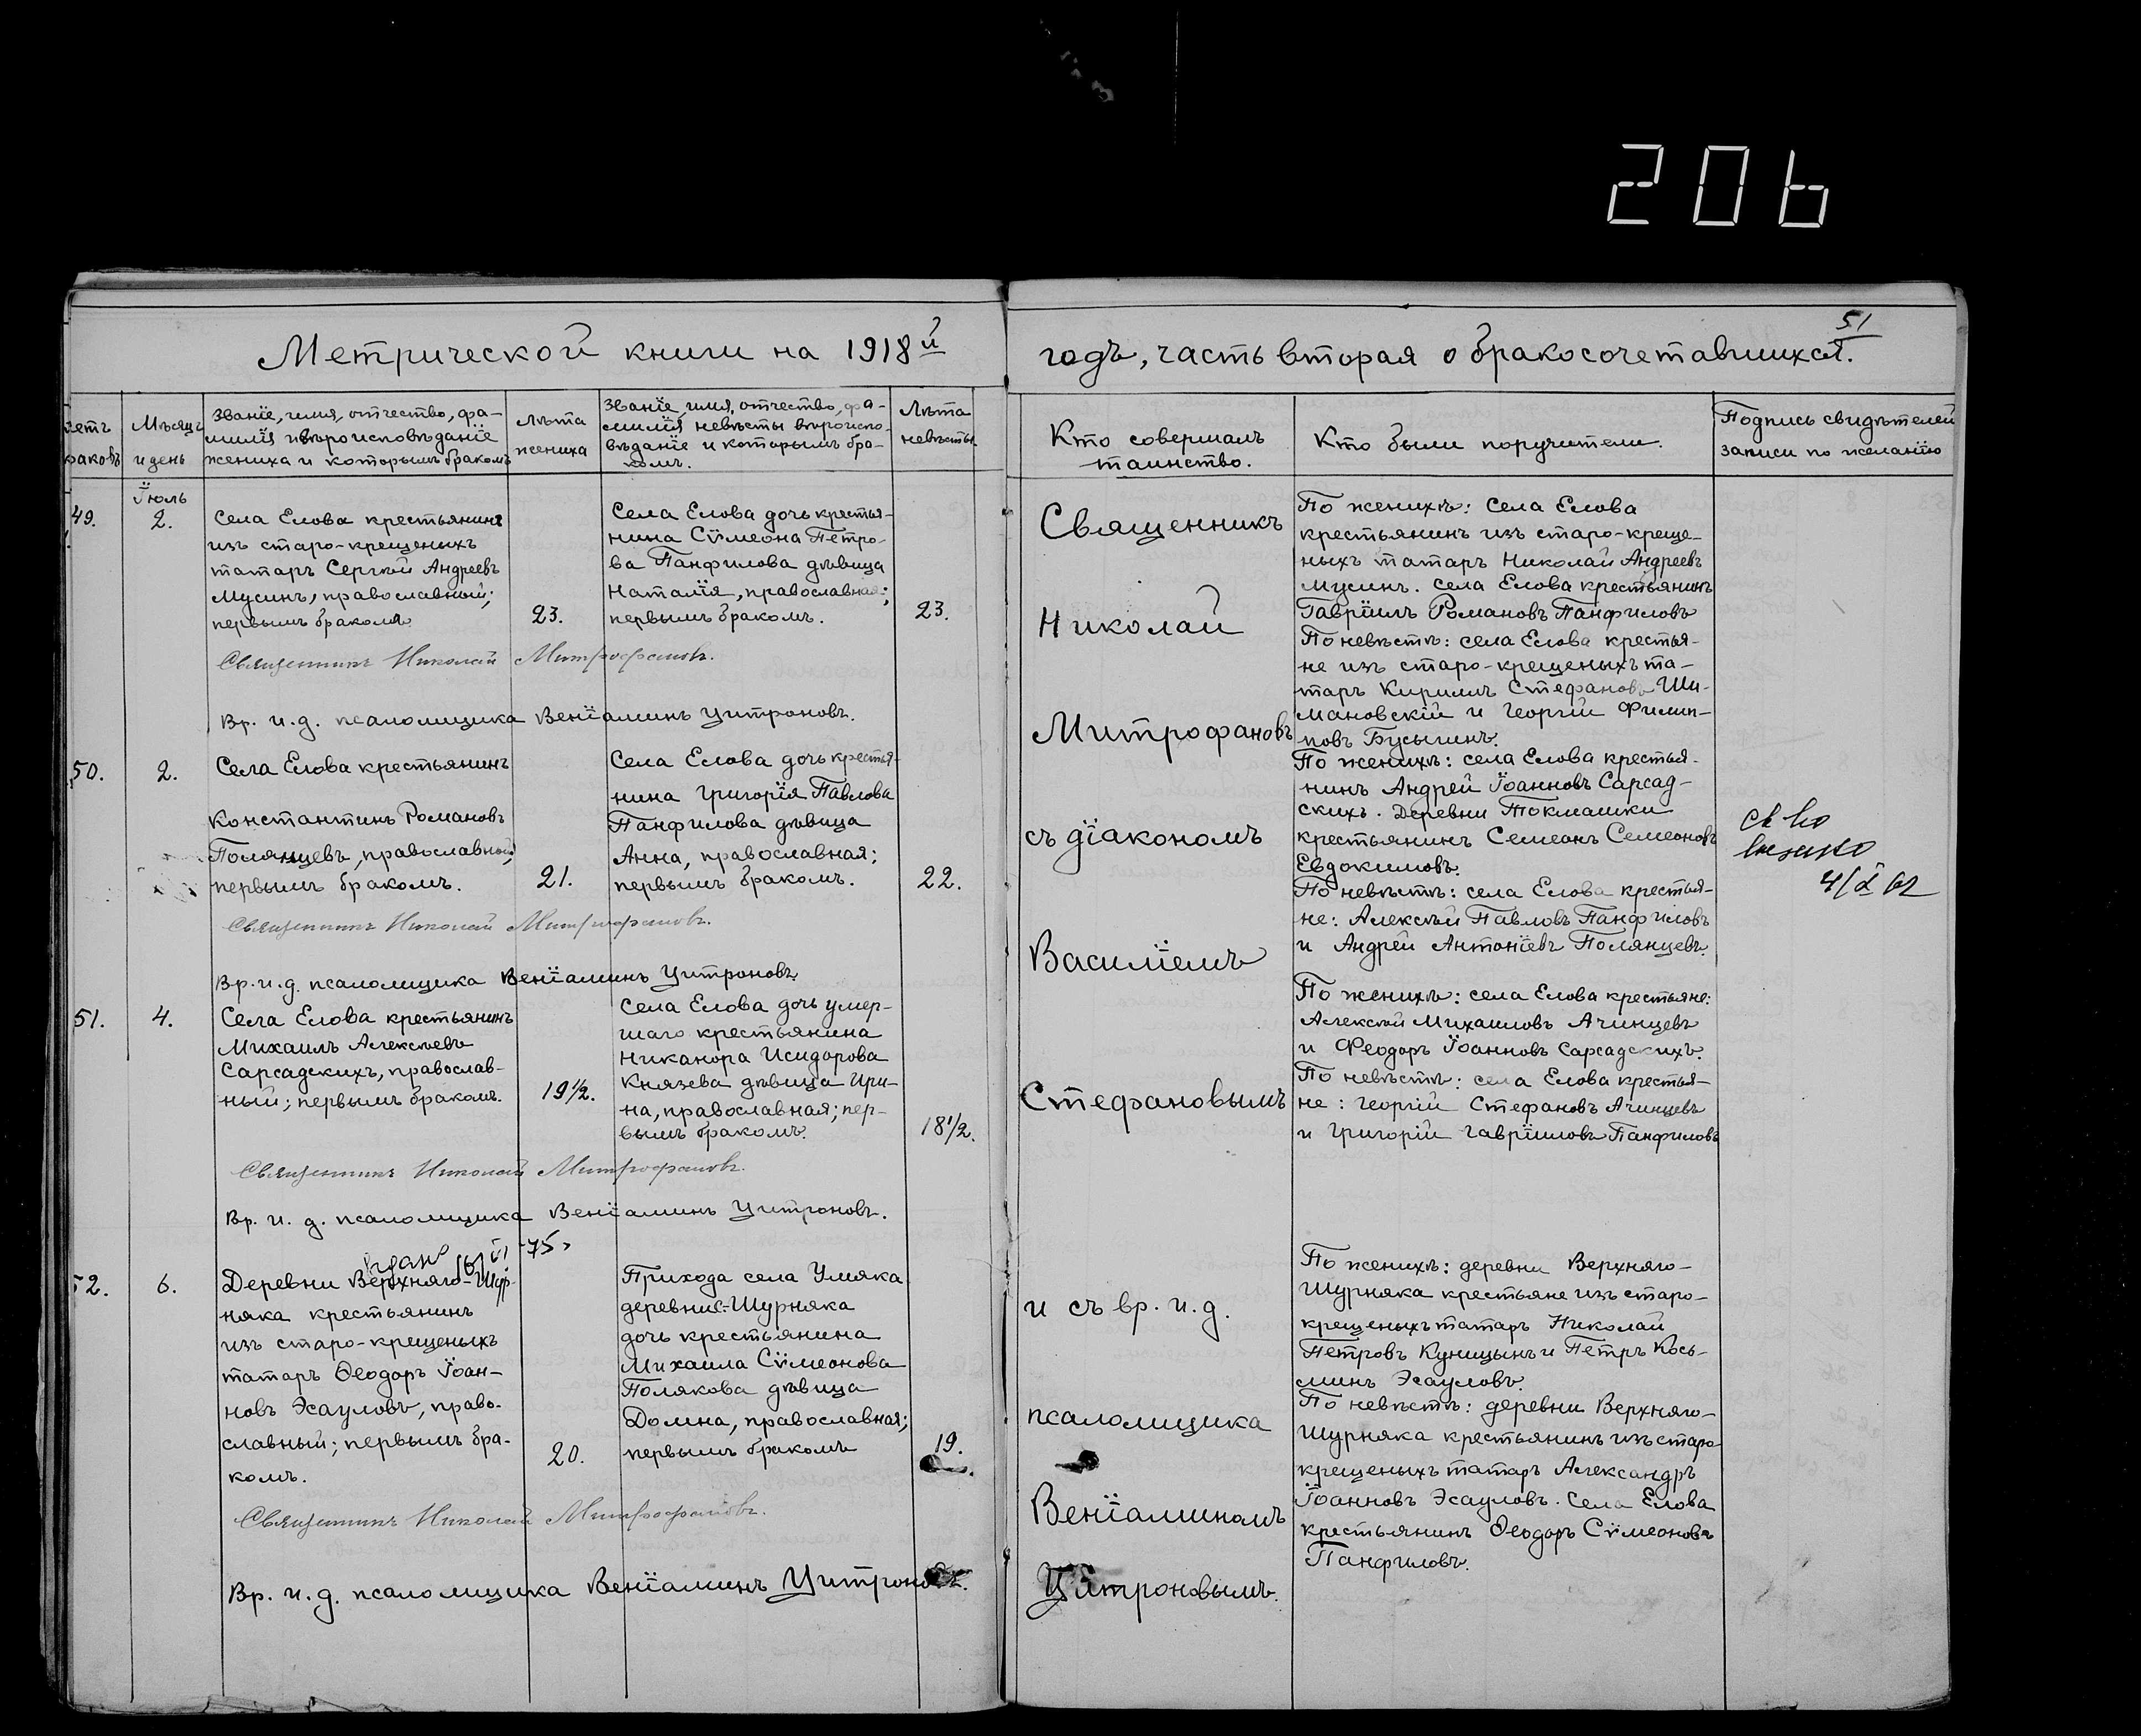 206
51
Метрической книги на 1918й
годъ, часть вторая о бракосочетавшихся.
Счетъ
браковъ
Мѣсяцъ
и день
Званіе, имя, отчество, фа-
милія и вѣроисповѣданіе
жениха и которымъ бракомъ
Лѣта
жениха
Званіе, имя, отчество, фа-
милія невѣсты вѣроиспо-
вѣданіе и которымъ бра-
комъ.
Лѣта
невѣсты.
Кто совершалъ
таинство.
Кто были поручители.
Подпись свидѣтелей
записи по желанію
49.
Іюль
2.
Села Елова крестьянинъ
изъ старо-крещеныхъ
татаръ Сергѣй Андреевъ
Мусинъ, православный;
первымъ бракомъ
23.
Села Елова дочь крестья-
нина Сѵмеона Петро-
ва Панфилова дѣвица
Наталія, православная;
первымъ бракомъ.
23.
Священникъ Николай Митрофановъ.
Вр. и. д. псаломщика Веніаминъ Цитроновъ.
50.
2.
Села Елова крестьянинъ
Константинъ Романовъ
Полянцевъ, православный;
первымъ бракомъ.
21.
Села Елова дочь крестья-
нина Григорія Павлова
Панфилова дѣвица
Анна, православная;
первымъ бракомъ.
22.
Священникъ Николай Митрофановъ.
Вр. и. д. псаломщика Веніаминъ Цитроновъ
51.
4.
Села Елова крестьянинъ
Михаилъ Алексѣевъ
Сарсадскихъ, православ-
ный; первымъ бракомъ.
19½.
Села Елова дочь умер-
шаго крестьянина
Никанора Исидорова
Князева дѣвица Ири-
на, православная; пер-
вымъ бракомъ.
18½.
Священникъ Николай Митрофановъ.
Вр. и. д. псаломщика Веніаминъ Цитроновъ.
75
52.
6.
Деревни Верхняго-Шур-
няка крестьянинъ
изъ старо-крещеныхъ
татаръ Ѳеодоръ Іоан-
новъ Эсауловъ, право-
славный; первымъ бра-
комъ.
20.
Прихода села Умяка
деревни С-Шурняка
дочь крестьянина
Михаила Сѵмеонова
Полякова дѣвица
Домна, православная;
первымъ бракомъ
19.
Священникъ Николай Митрофановъ.
Вр. и. д. псаломщика Веніаминъ Цитроновъ.
Священникъ
Николай
Митрофановъ
съ діакономъ
Василіемъ
Стефановымъ
и съ вр. и. д.
псаломщика
Веніаминомъ
Цитроновымъ.
По женихѣ: села Елова
крестьянинъ изъ старо-креще-
ныхъ татаръ Николай Андреевъ
Мусинъ. Села Елова крестьянинъ
Гавріилъ Романовъ Панфиловъ
По невѣстѣ: села Елова крестья-
не изъ старо-крещеныхъ та-
таръ Кириллъ Стефановъ Ши-
мановскій и Георгій Филип-
повъ Бусыгинъ.
По женихѣ: села Елова крестья-
нинъ Андрей Іоанновъ Сарсад-
скихъ. Деревни Токмашки
крестьянинъ Семеонъ Семеоновъ
Евдокимовъ.
По невѣстѣ: села Елова крестья-
не: Алексѣй Павловъ Панфиловъ
и Андрей Антоніевъ Полянцевъ.
По женихѣ: села Елова крестьяне:
Алексѣй Михаиловъ Ачинцевъ
и Ѳеодоръ Іоанновъ Сарсадскихъ.
По невѣстѣ: села Елова крестья-
не: Георгій Стефановъ Ачинцевъ
и Григорій Гавріиловъ Панфиловъ
По женихѣ: деревни Верхняго-
Шурняка крестьяне изъ старо-
крещеныхъ татаръ Николай
Петровъ Куницынъ и Петръ Кось-
минъ Эсауловъ.
По невѣстѣ: деревни Верхняго-
Шурняка крестьянинъ изъ старо-
крещеныхъ татаръ Александръ
Іоанновъ Эсауловъ. Села Елова
крестьянинъ Ѳеодоръ Сѵмеоновъ
Панфиловъ.